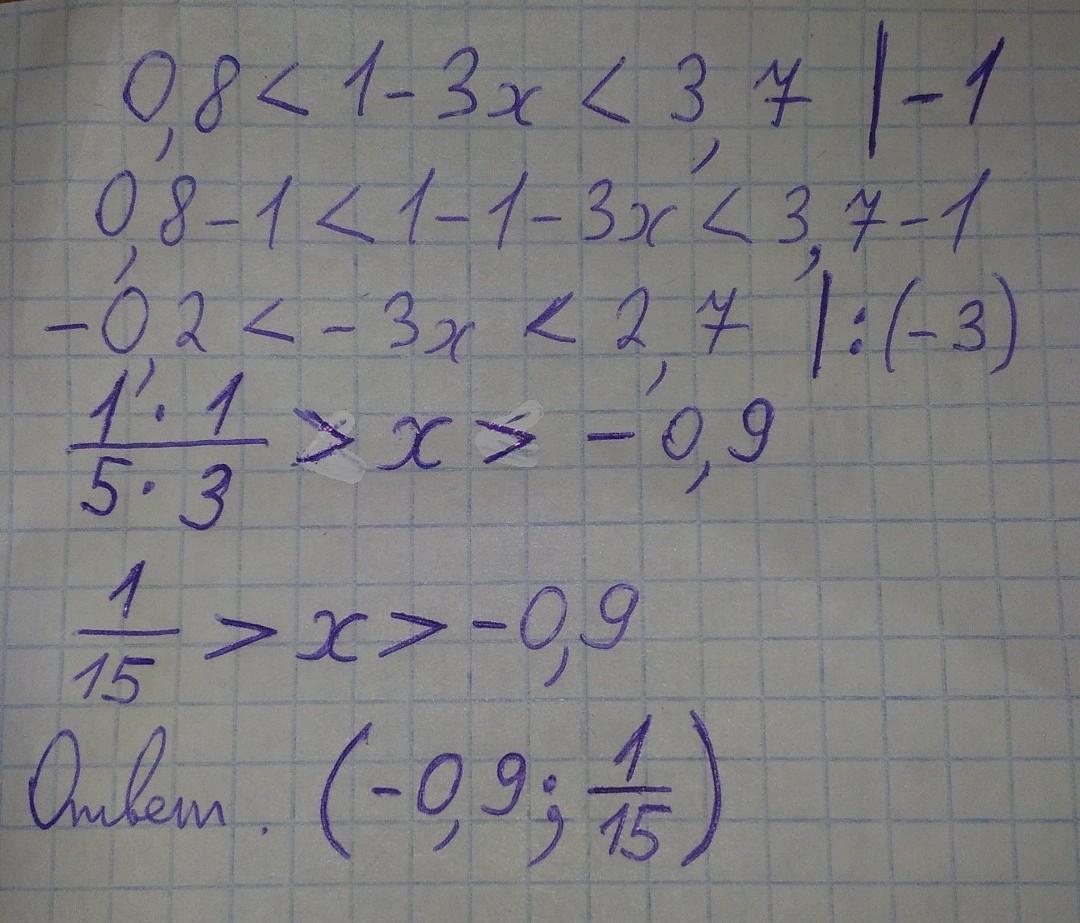 0,8 < 1 - 3x < 3,7 | - 1
0,8 - 1 < 1 - 1 - 3x < 3,7 - 1
-0,2 < - 3x < 2,7 | : (-3)
1 · 1 / 5 · 3 > x > - 0,9
1/15 > x > -0,9
Ответ. (-0,9; 1/15)